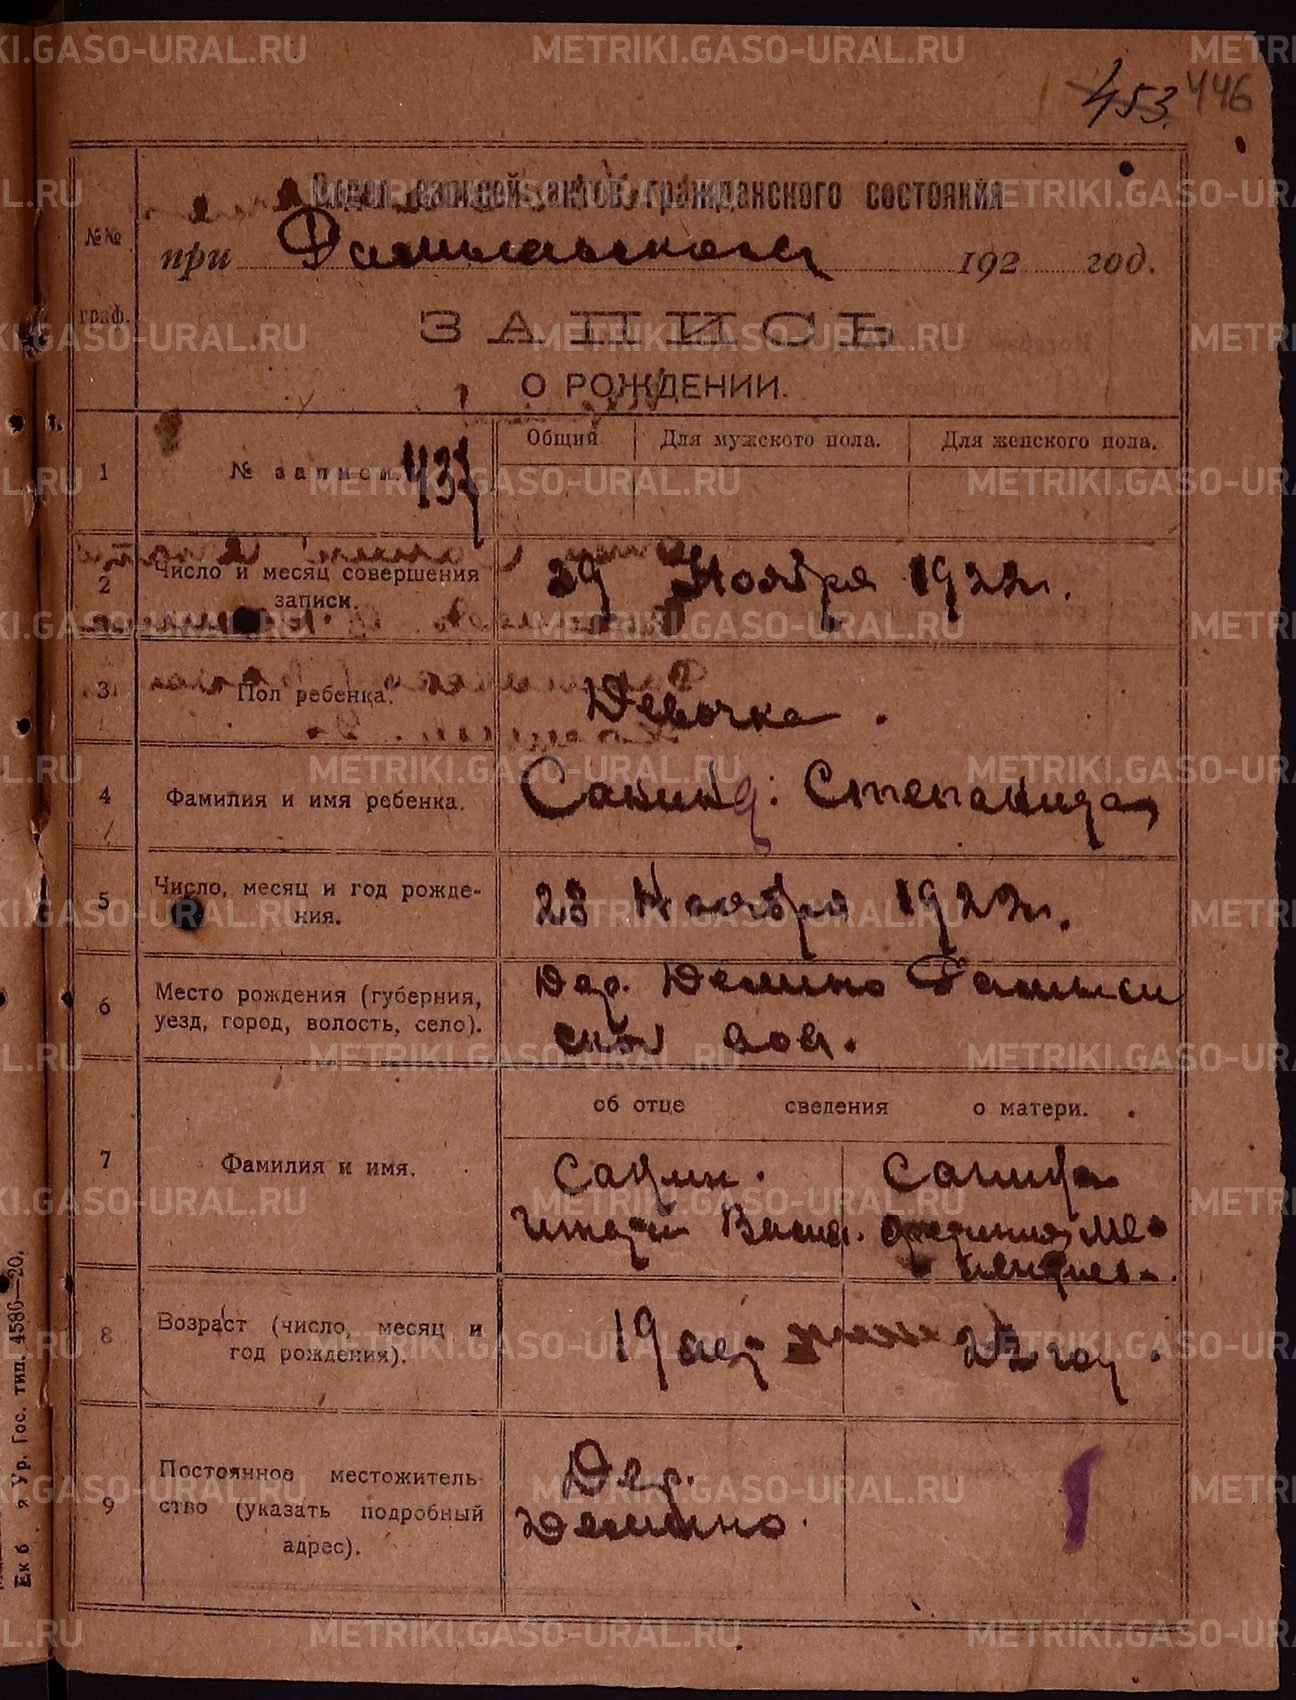 453. 446
Отдел записей актов гражданского состояния
№№
при 192 год.
граф.
ЗАПИСЬ
О РОЖДЕНИИ.
Общий. Для мужского пола. Для женского пола.
1 № записи.
2 Число и месяц совершения 29 Ноября 1922 г.
записи.
3 Пол ребенка. Девочка.
4 Фамилия и имя ребенка. Санина: Степанида
5 Число, месяц и год рожде- 28 Ноября 1922 г.
ния.
6 Место рождения (губерния, Дер. Демино
уезд, город, волость, село). ской вол.
об отце сведения о матери.
7 Фамилия и имя. Санин. Санина
8 Возраст (число, месяц и 19 лет
год рождения).
9 Постоянное местожитель- Дер.
ство (указать подробный Демино.
адрес).
Ур. Гос. тип. 4586—20.
METRIKI.GASO-URAL.RU